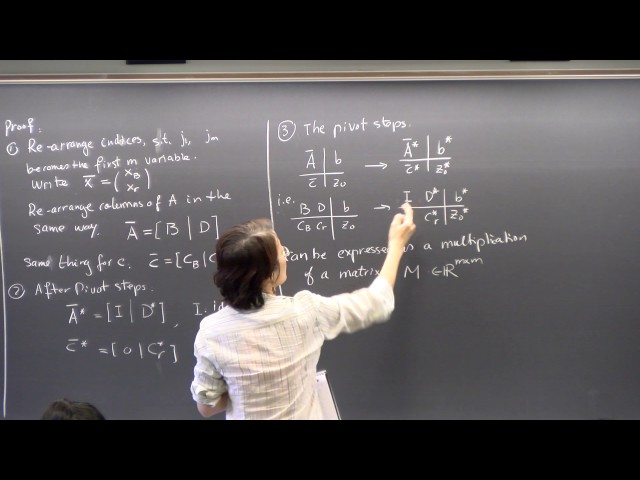 Proof:
① Re-arrange indices, s.t. j₁, jₘ
becomes the first m variable.
Write x̄ = (x_B x_r)
Re-arrange columns of A in the
same way. Ā = [B | D]
Same thing for c. c̄ = [C_B | C
② After Pivot steps.
Ā* = [I | D*], I. i
c̄* = [0 | C_r*]
③ The pivot steps.
Ā | b → Ā* | b*
c̄ | z₀ c̄* | z₀*
i.e. B D | b → I D* | b*
C_B C_r | z₀ C_r* | z₀*
can be expressed as a multiplication
of a matrix M ∈ ℝ^{m×m}